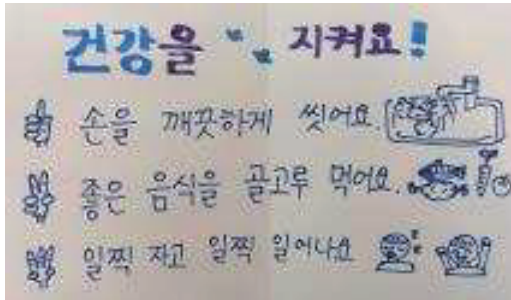 건강을 지켜요!
손을 깨끗하게 씻어요.
좋은 음식을 골고루 먹어요.
일찍 자고 일찍 일어나요